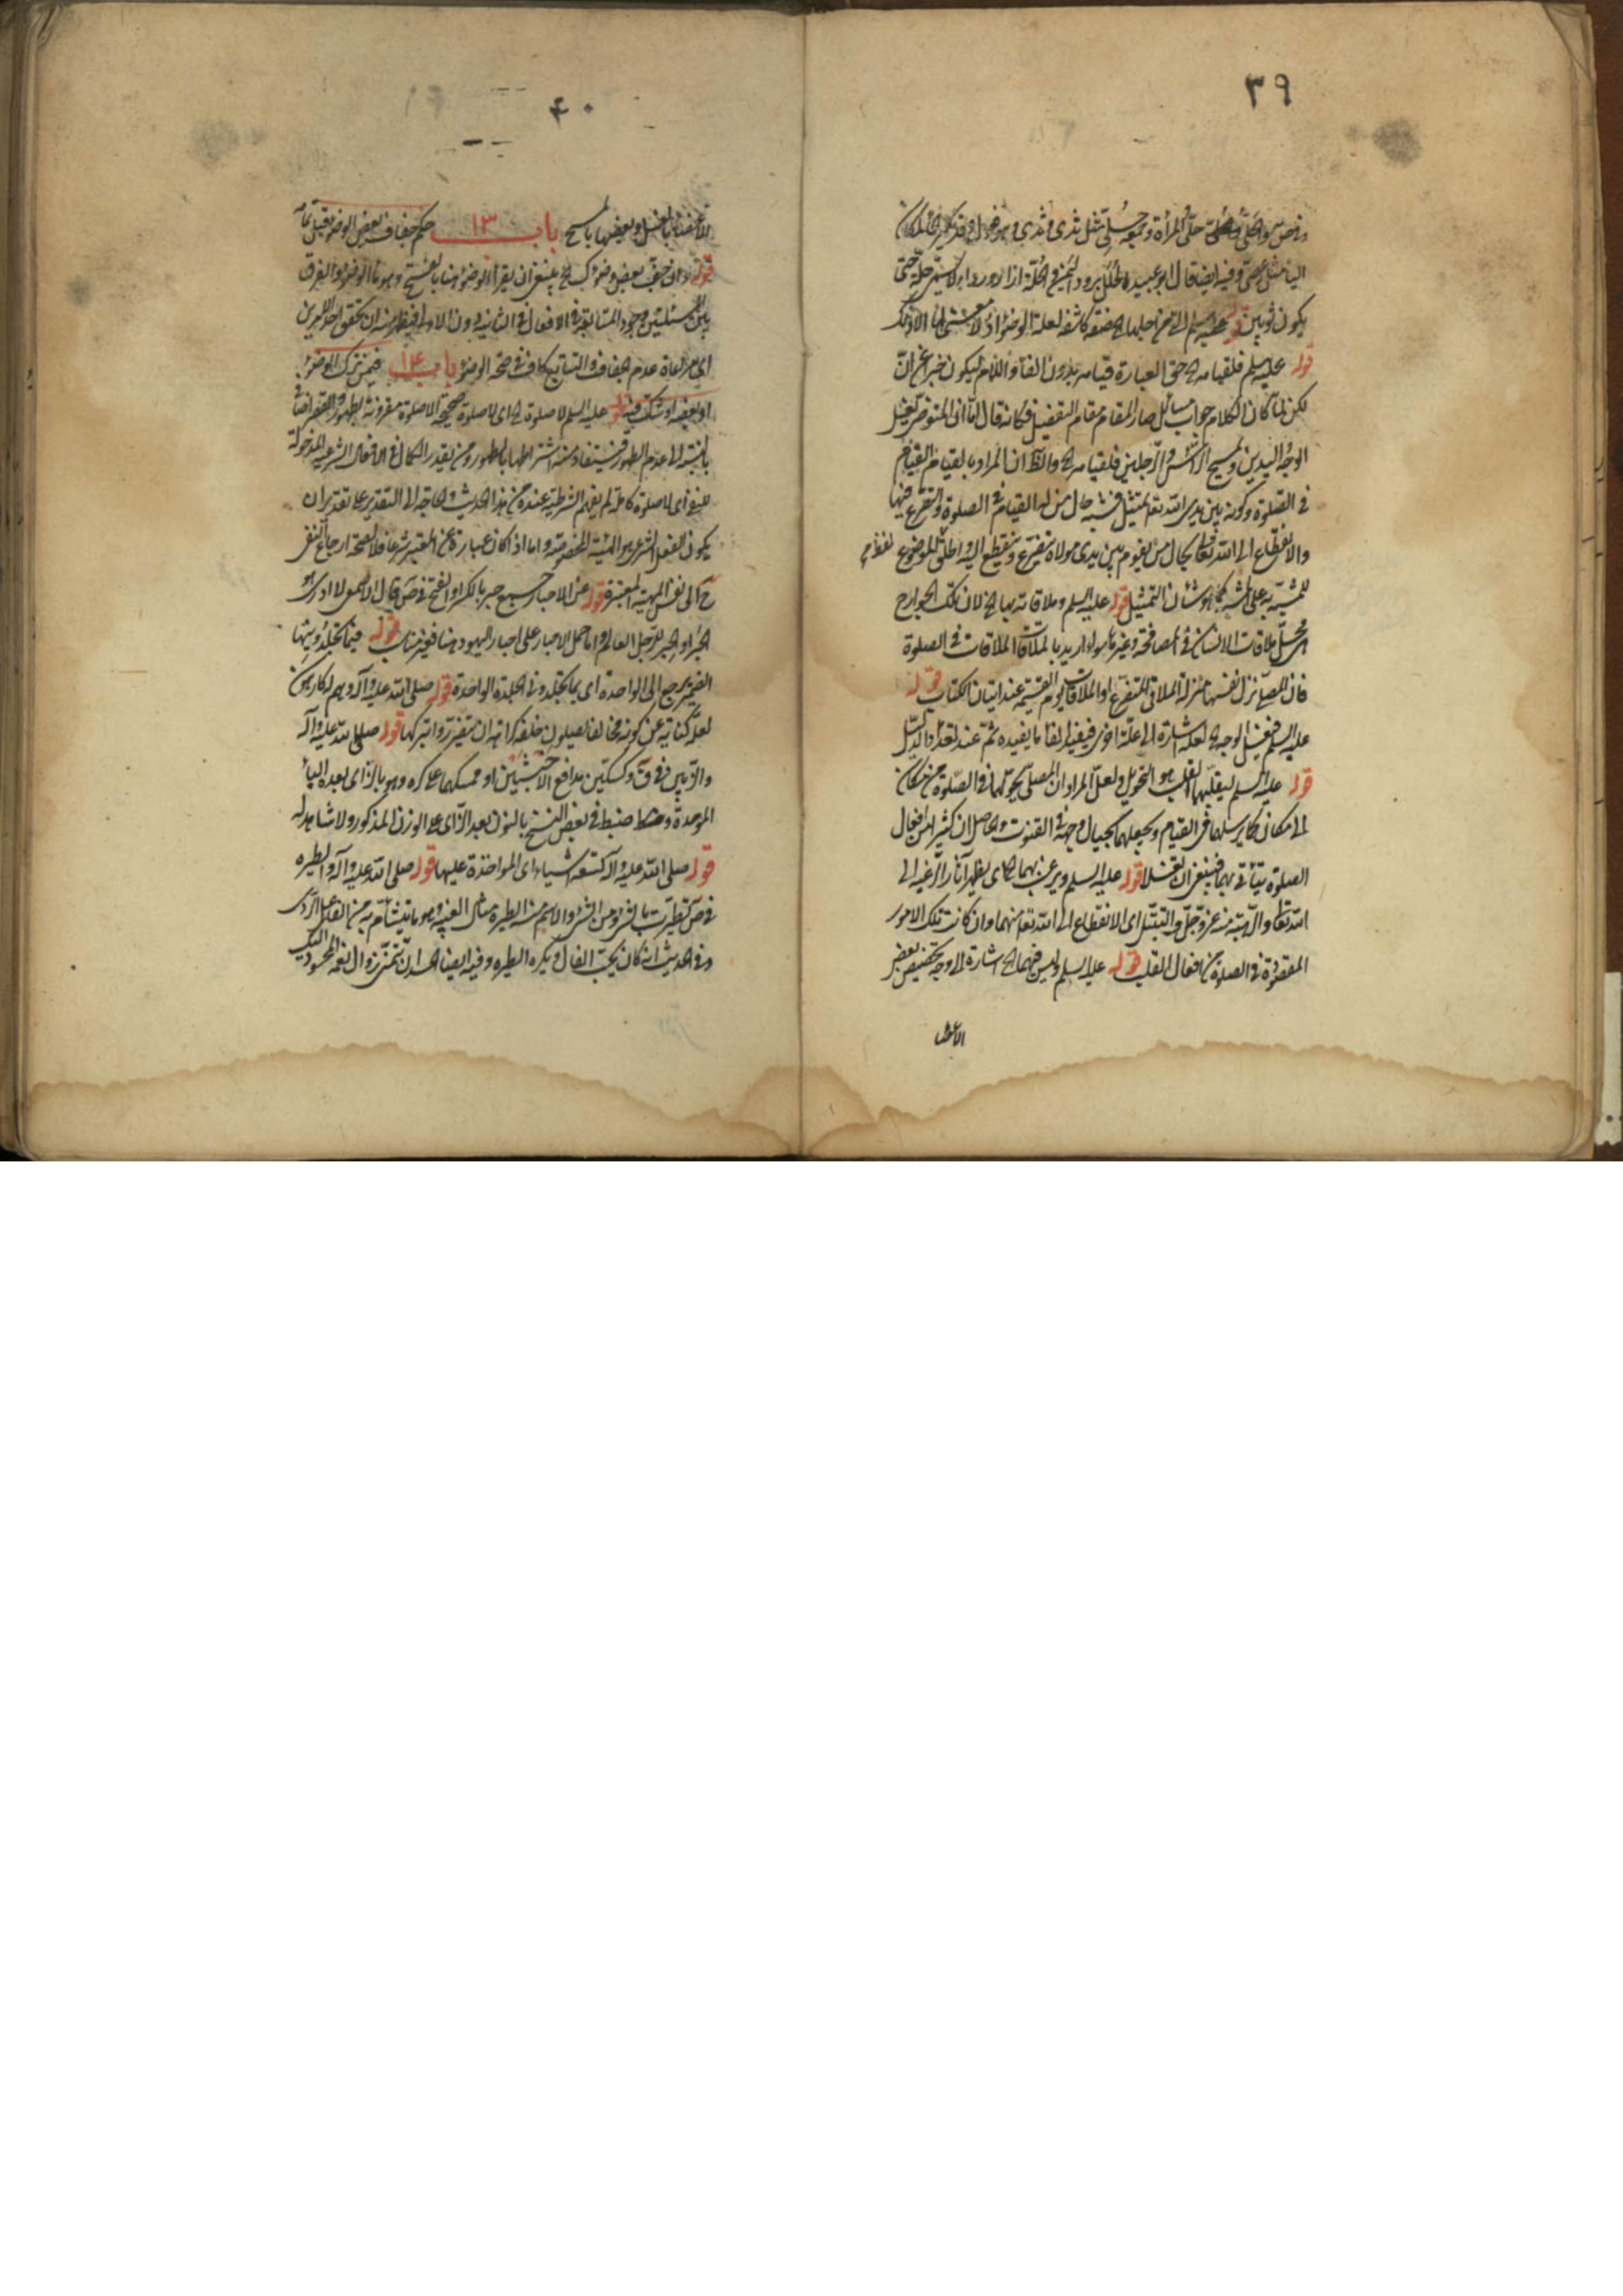 ٣٩
وفيه ايضا قال ابو عبيده الحلل برود اليمن والحلة ازار ورداء لا يسمى حلة حتى
يكون ثوبين قوله
قوله عليه السلم فلقيامه الخ حق العبارة قيامه بدون الفاء واللام ليكون خبرا عن انّ
لكن لمّا كان الكلام جواب سائل صار المقام مقام التفصيل فكانه قال امّا انّ المتوضى يغسل
الوجه واليدين ويمسح الراس والرجلين فلقيامه الخ والظ ان المراد بالقيام القيام
في الصلوة وكونه بين يدى الله تعا تمثيل فشبه حال من له القيام في الصلوة والتضرع فيها
والانقطاع الى الله تعالى بحال من يقوم بين يدى مولاه يتضرع وينقطع اليه واطلق الموضوع لفظه
للمشبه به على المشبه كما هو شان التمثيل قوله عليه السلم وملاقاته بها الخ لان تلك الجوارح
محل ملاقات الانسان في المصافحة وغيرها سواء اريد بالملاقات الملاقات في الصلوة
فان المصلى نزل نفسها منزلة الملاقى المتضرع او الملاقات يوم القيمة عند اتيان الكتاب قوله
عليه السلم فغسل الوجه الخ لعله اشارة الى علة اخرى
قوله عليه السلم ليقلبهما القلب هو التحويل ولعل المراد ان المصلى يحولهما في الصلوة من مكان
الى مكان كما يرسلهما في القيام ويجعلهما بحيال وجهه في القنوت والحاصل ان كثيرا من افعال
الصلوة يتاتى بهما فينبغى ان تغسلا قوله عليه السلم ويرغب بهما الخ اى يظهر آثار الرغبة الى
الله تعا والرهبة منه عز وجل والتبتل اى الانقطاع الى الله تعا منهما وان كانت تلك الامور
المقصودة في الصلوة من افعال القلب قوله عليه السلم وليس فيهما الخ اشارة الى وجه تخصيص بعض
الاعضا
٤٠
الاعضاء بالغسل وبعضها بالمسح باب ١٣ حكم جفاف بعض الوضوء قبل تمامه
قوله وان جف بعض وضوئك الخ ينبغى ان يقرأ الوضوء هنا بالفتح وهو ماء الوضوء والفرق
بين المسئلتين وجود المتابعة في الافعال في الثانية دون الاولى فيظهر منه ان تحقق احد الامرين
اى مراعاة عدم الجفاف والتتابع كاف في صحة الوضوء باب ١٤ فيمن ترك الوضوء
او بعضه او شك فيه قوله عليه السلم لا صلوة الخ اى لا صلوة صحيحة الا صلوة مقرونة بطهور
بالنسبة الى عدم الطهور فيستفاد منه اشتراطها بالطهور ومن يقدر الكمال في الافعال الشرعية المدخولة
للنفى اى لا صلوة كاملة لم يفهم الشرطية عنده من هذا الحديث والحاجة الى التقدير على تقدير ان
يكون الفعل الشرعى هو الهيئة المخصوصة واما اذا كان عبارة عن المعتبر شرعا فلا لصحة ارجاع النفى
ح الى نفس الهيئة المعتبرة قوله عن الاحبار جمع حبر بالكسر او الفتح في ص قال الاصمعى لا ادرى هو
الحبر او الحبر للرجل العالم واما حمل الاحبار على احبار اليهود هنا فغير مناسب قوله
الضمير يرجع الى الواحدة اى يجلد في الجلدة الواحدة قوله صلى الله عليه وآله وهم له كارهون
لعله كناية عن كونه مخالفا لا فيصلون خلفه كراهة ان يتضرروا بتركها قوله صلى الله عليه وآله
والزبين في ق وكسكين مدافع الاخبثين او ممسكهما على كره وهو بالزاى بعده الباء
الموحدة وضبط في بعض النسخ بالنون بعد الزاى على الوزن المذكور ولا شاهد له
قوله صلى الله عليه وآله تسعة اشياء اى المؤاخذة عليها قوله صلى الله عليه وآله والطيره
في ص تطيرت بالشىء ومن الشىء والاسم منه الطيره مثال العنبة وهو ما يتشأم به من الفال الردى
وفي الحديث انه كان يحب الفال ويكره الطيره وفيه ايضا الحسد ان تتمنى زوال نعمة المحسود اليك